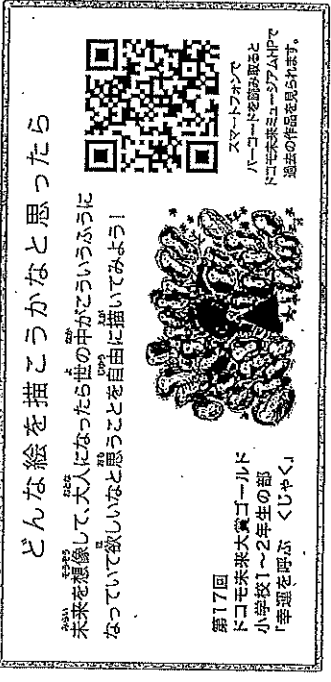 どんな絵を描こうかなと思ったら
未来を想像して、大人になったら世の中がこういうふうに
なっていて欲しいなと思うことを自由に描いてみよう!
第17回
ドコモ未来大賞ゴールド
小学校1～2年生の部
「幸運を呼ぶ くじゃく」
スマートフォンで
バーコードを読み取ると
ドコモ未来ミュージアムHPで
過去の作品を見られます。